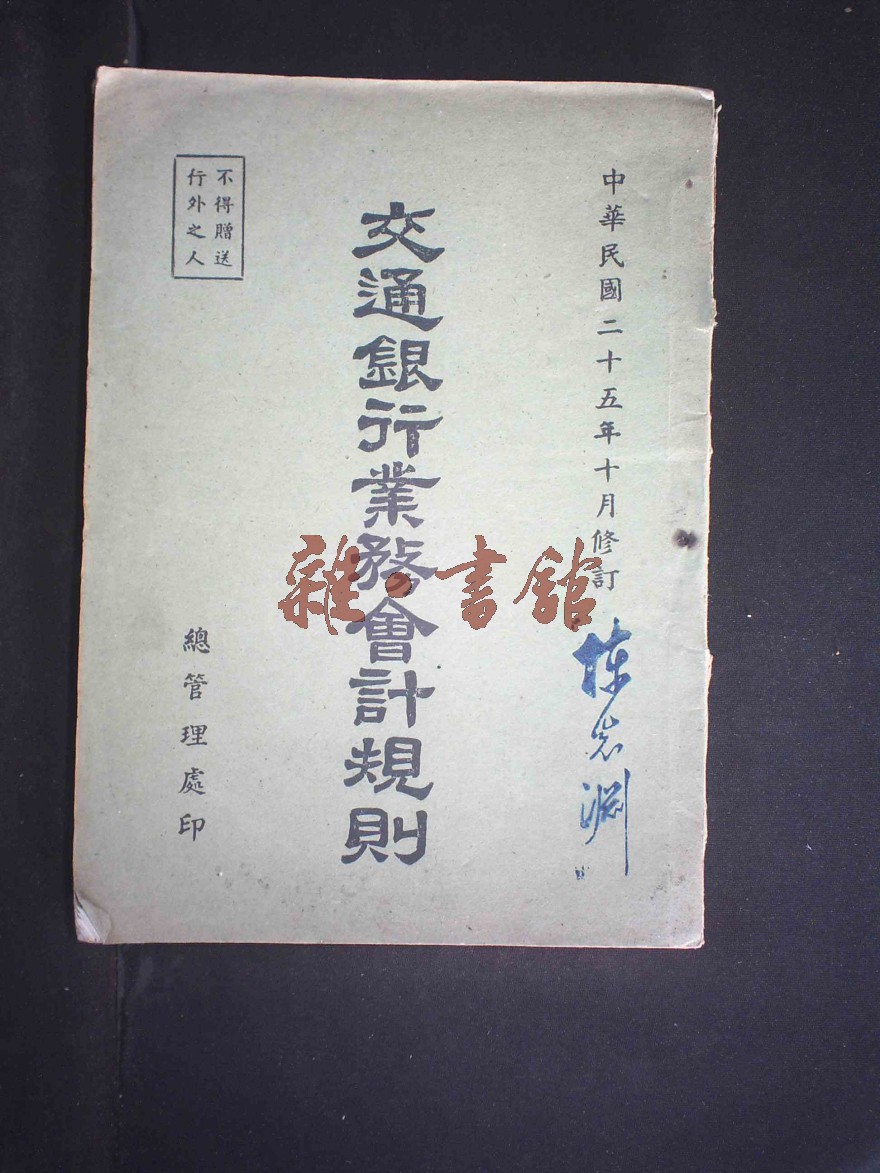 中華民國二十五年十月修訂
交通銀行業務會計規則
不得贈送
行外之人
總管理處印
雜·書館